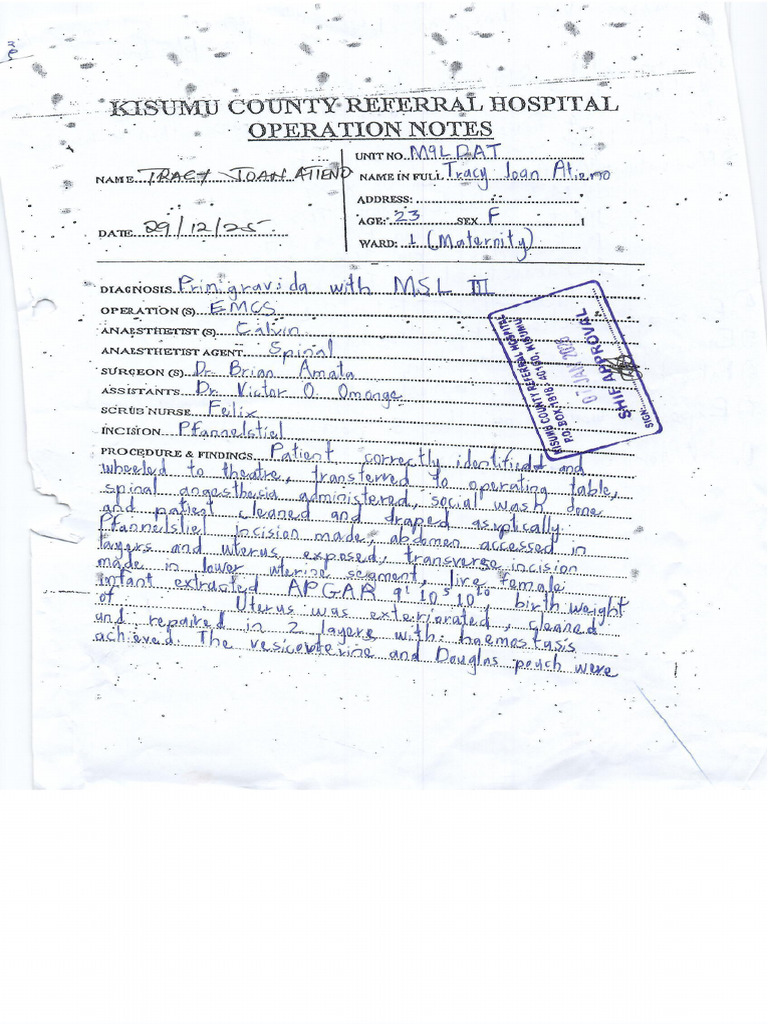 KISUMU COUNTY REFERRAL HOSPITAL
OPERATION NOTES
NAME TRACY JOAN ATIENO
DATE 29/12/25
UNIT NO. M9LDAT
NAME IN FULL Tracy Joan Atieno
ADDRESS:
AGE: 23 SEX F
WARD: 1 (Maternity)
DIAGNOSIS Primigravida with MSL III
OPERATION (S) EMCS
ANAESTHETIST (S) Calvin
ANAESTHETIST AGENT Spinal
SURGEON (S) Dr. Brian Amata
ASSISTANTS Dr. Victor O. Omange
SCRUB NURSE Felix
INCISION Pfannelstiel
PROCEDURE & FINDINGS Patient correctly identified and
wheeled to theatre, transferred to operating table,
spinal anaesthesia administered, social wash done
and patient cleaned and draped aseptically.
Pfannelstiel incision made, abdomen accessed in
layers and uterus exposed, transverse incision
made in lower uterine segment, live female
infant extracted APGAR 9¹ 10⁵ 10¹⁰ birth weight
of Uterus was exteriorated, cleaned
and repaired in 2 layers with haemostasis
achieved. The vesicouterine and Douglas pouch were
KISUMU COUNTY REFERRAL HOSPITAL
P.O. BOX 1818-40100, KISUMU
JAN
SHIF APPROVAL
SIGN: